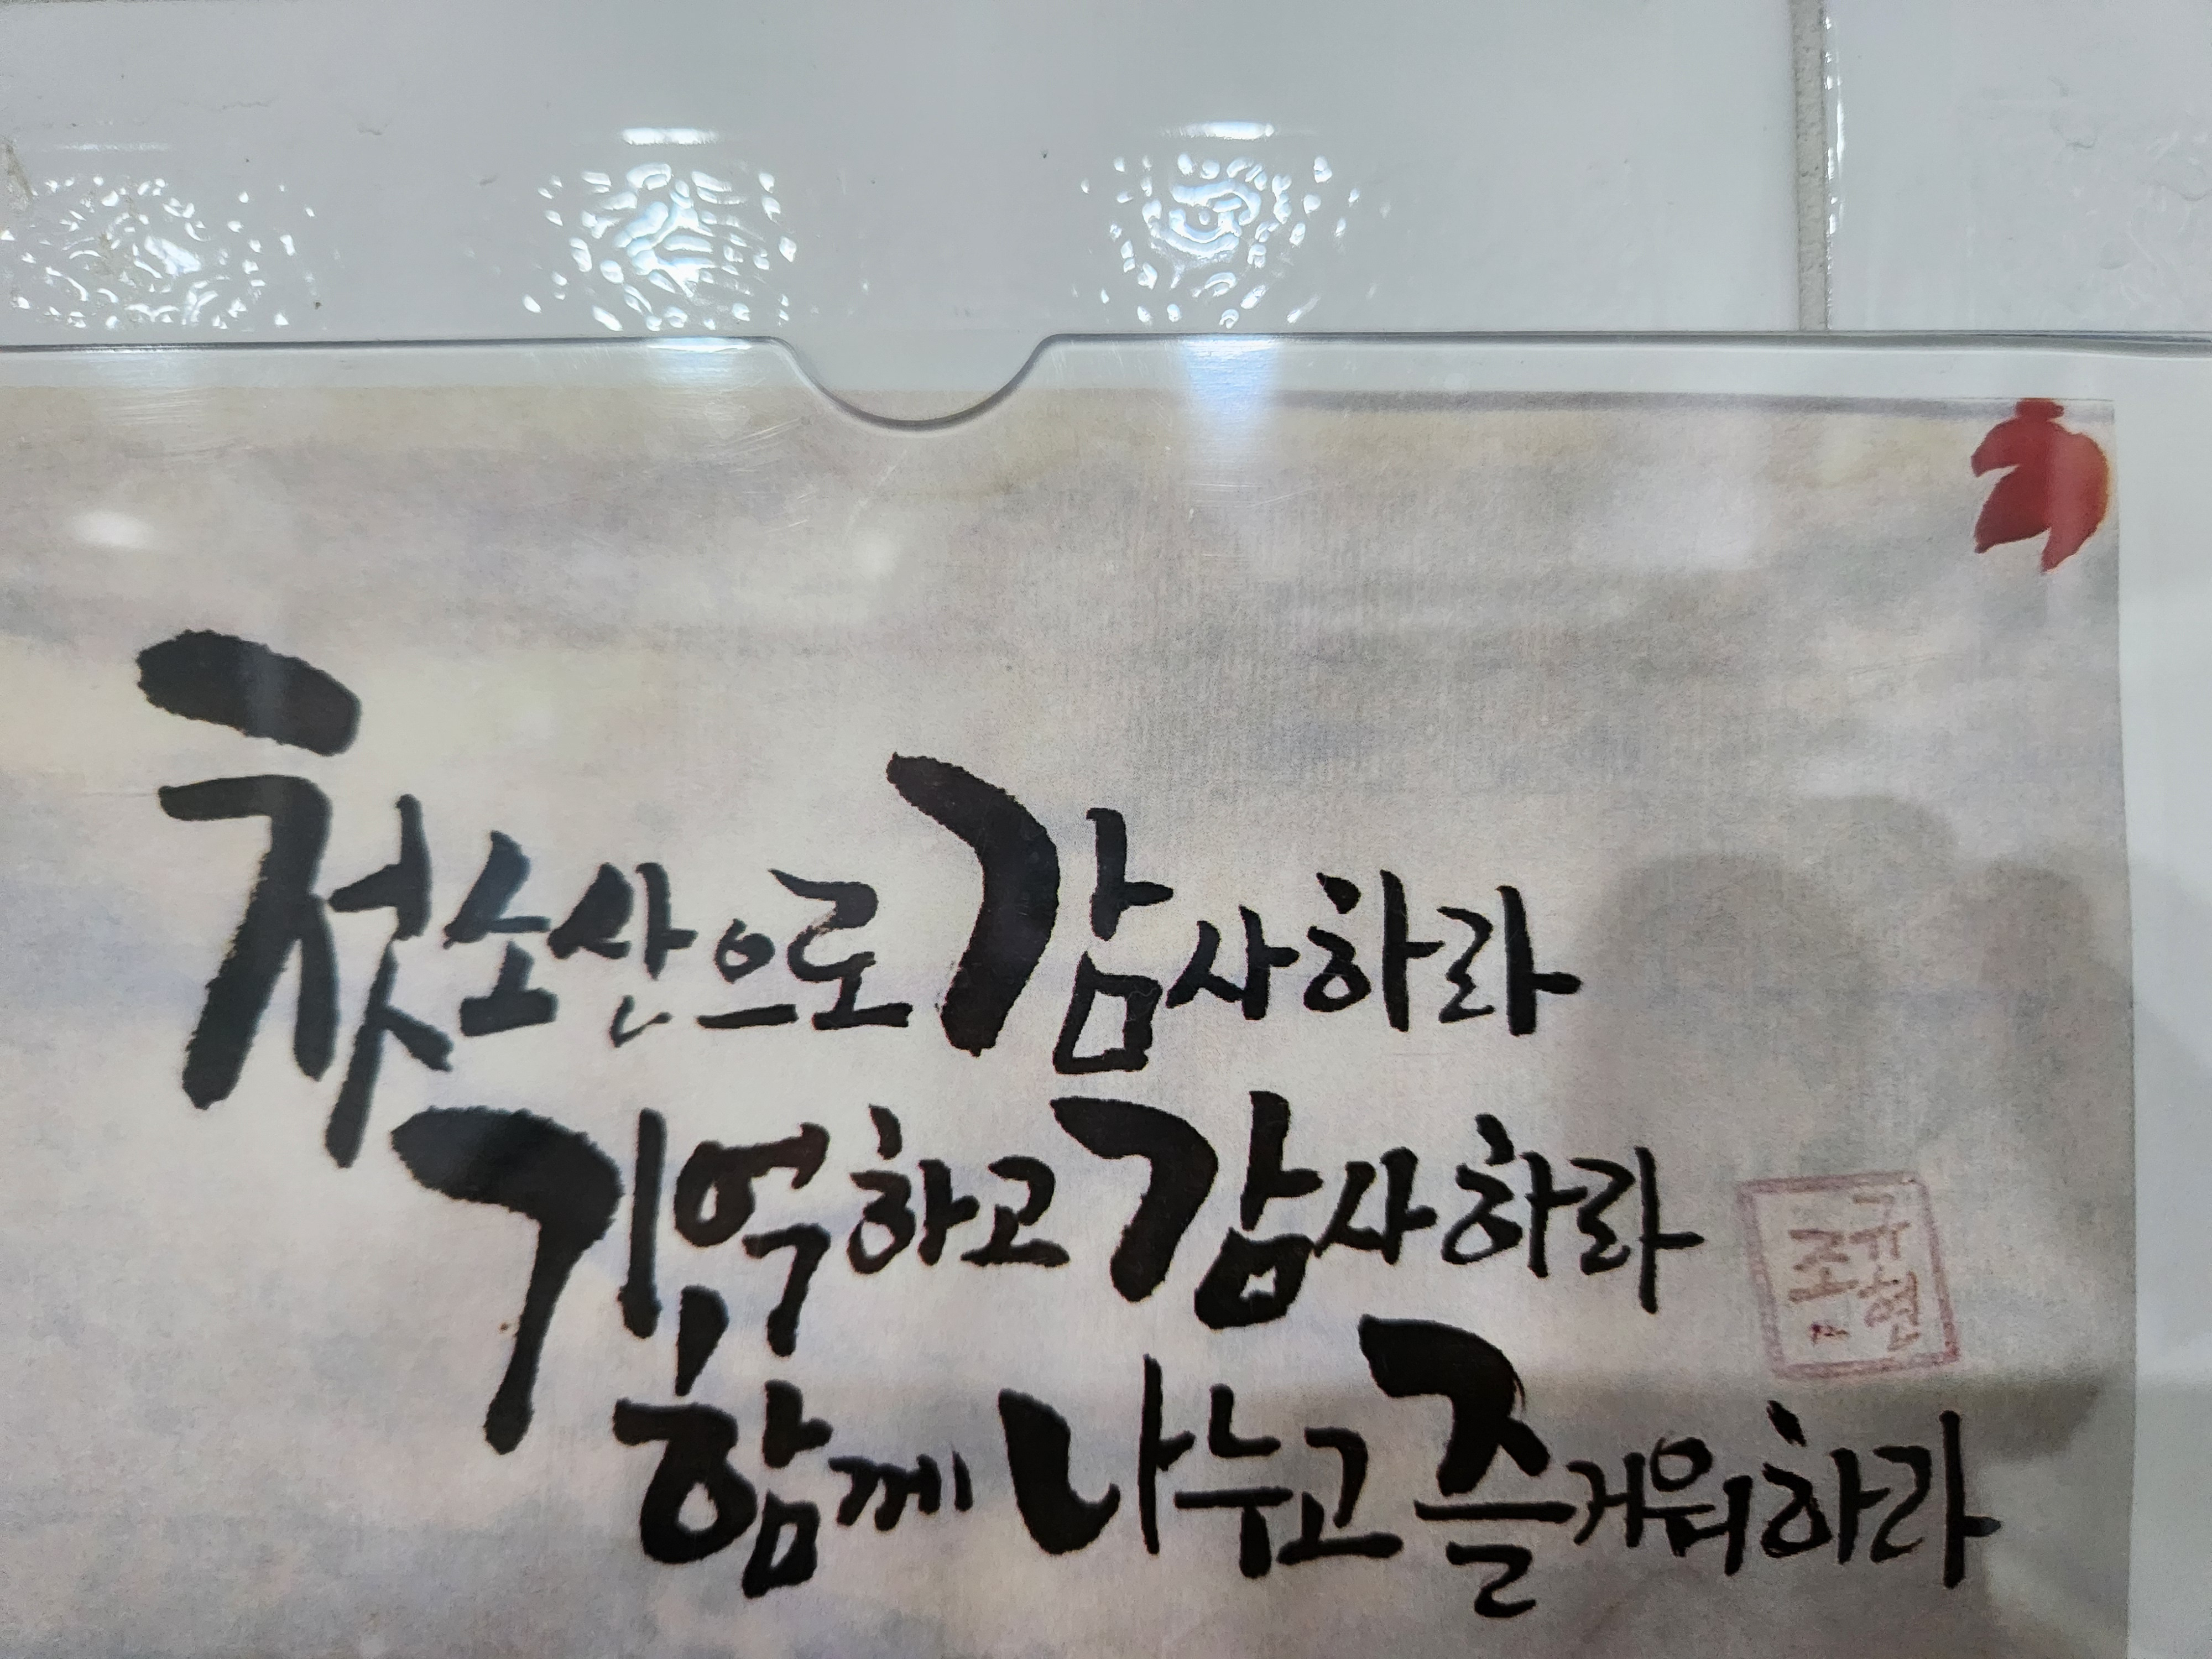 첫소산으로 감사하라
기억하고 감사하라
함께 나누고 즐거워하라
조규현